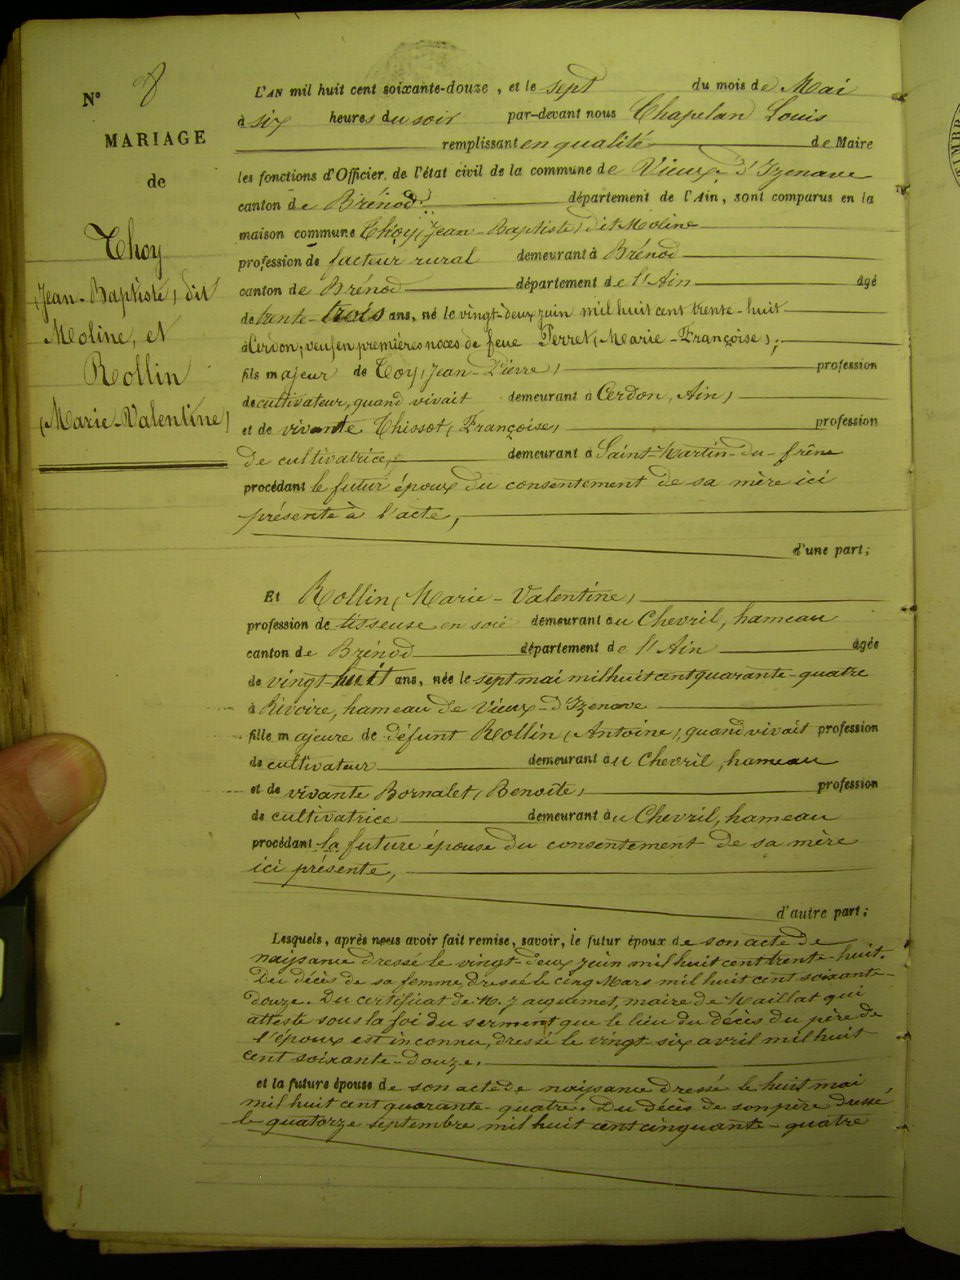 N° 8
MARIAGE
de
Thoy
(Jean-Baptiste) dit
Moline, et
Rollin
(Marie-Valentine)
L'AN mil huit cent soixante-douze, et le sept du mois de Mai
à six heures du soir par-devant nous Chapelan Louis
remplissant en qualité de Maire
les fonctions d'Officier de l'état civil de la commune de Vieux-d'Izenave
canton de Brénod département de l'Ain, sont comparus en la
maison commune Thoy (Jean-Baptiste) dit Moline
profession de facteur rural demeurant à Brénod
canton de Brénod département de l'Ain âgé
de trente-trois ans, né le vingt-deux juin mil huit cent trente-huit
à Cerdon, veuf en premières noces de feue Perret (Marie-Françoise);
fils majeur de Toy (Jean-Pierre) profession
de cultivateur, quand vivait demeurant à Cerdon, Ain,
et de vivante Chissot (Françoise) profession
de cultivatrice, demeurant à Saint-Martin-du-frêne
procédant le futur époux du consentement de sa mère ici
présente à l'acte,
d'une part;
Et Rollin (Marie-Valentine)
profession de tisseuse en soie demeurant au Chevril, hameau
canton de Brénod département de l'Ain âgée
de vingt-huit ans, née le sept mai mil huit cent quarante-quatre
à Rivoire, hameau de Vieux-d'Izenave
fille majeure de défunt Rollin (Antoine), quand vivait profession
de cultivateur demeurant au Chevril, hameau
et de vivante Bornalet (Benoite) profession
de cultivatrice demeurant au Chevril, hameau
procédant la future épouse du consentement de sa mère
ici présente,
d'autre part;
Lesquels, après nous avoir fait remise, savoir, le futur époux de son acte de
naissance dressé le vingt-deux juin mil huit cent trente-huit.
Du décès de sa femme, dressé le cinq Mars mil huit cent soixante-
douze. Du certificat de M. maire de Maillat qui
atteste sous la foi du serment que le lieu du décès du père de
l'époux est inconnu, dressé le vingt-six avril mil huit
cent soixante-douze.
et la future épouse de son acte de naissance dressé le huit mai
mil huit cent quarante-quatre. Du décès de son père dressé
le quatorze septembre mil huit cent cinquante-quatre